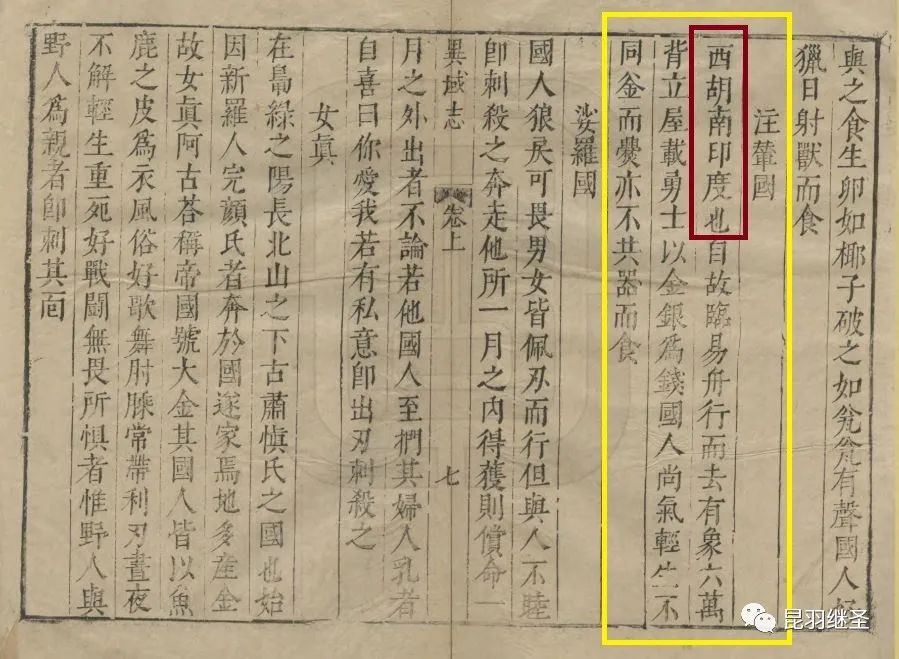 與之食生卵如椰子破之如瓮瓮有聲國人好
獵日射獸而食
注輦國
西胡南印度也自故臨易舟行而去有象六萬
背立屋載勇士以金銀為錢國人尚氣輕生不
同釜而爨亦不共器而食
娑羅國
國人狼戾可畏男女皆佩刃而行但與人不睦
即刺殺之奔走他所一月之內得獲則償命一
異域志 卷上 七
月之外出者不論若他國人至捫其婦人乳者
自喜曰你愛我若有私意即出刃刺殺之
女真
在鼂綠之陽長北山之下古肅慎氏之國也始
因新羅人完顏氏者奔於國遂家焉地多產金
故女真阿古荅稱帝國號大金其國人皆以魚
鹿之皮為衣風俗好歌舞肘膝常帶利刃晝夜
不解輕生重死好戰鬪無畏所懼者惟野人與
野人為親者即刺其面
昆羽继圣